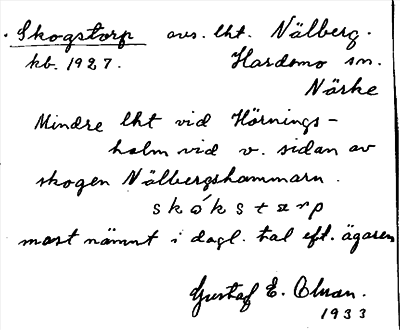 Skogstorp avs. lht. Nälberg.
kb. 1927. Hardemo sn.
Närke
Mindre lht vid Hörnings-
holm vid v. sidan av
skogen Nälbergshammarn.
skókstarp
mest nämnt i dagl. tal eft. ägaren
Gustaf E.
1933